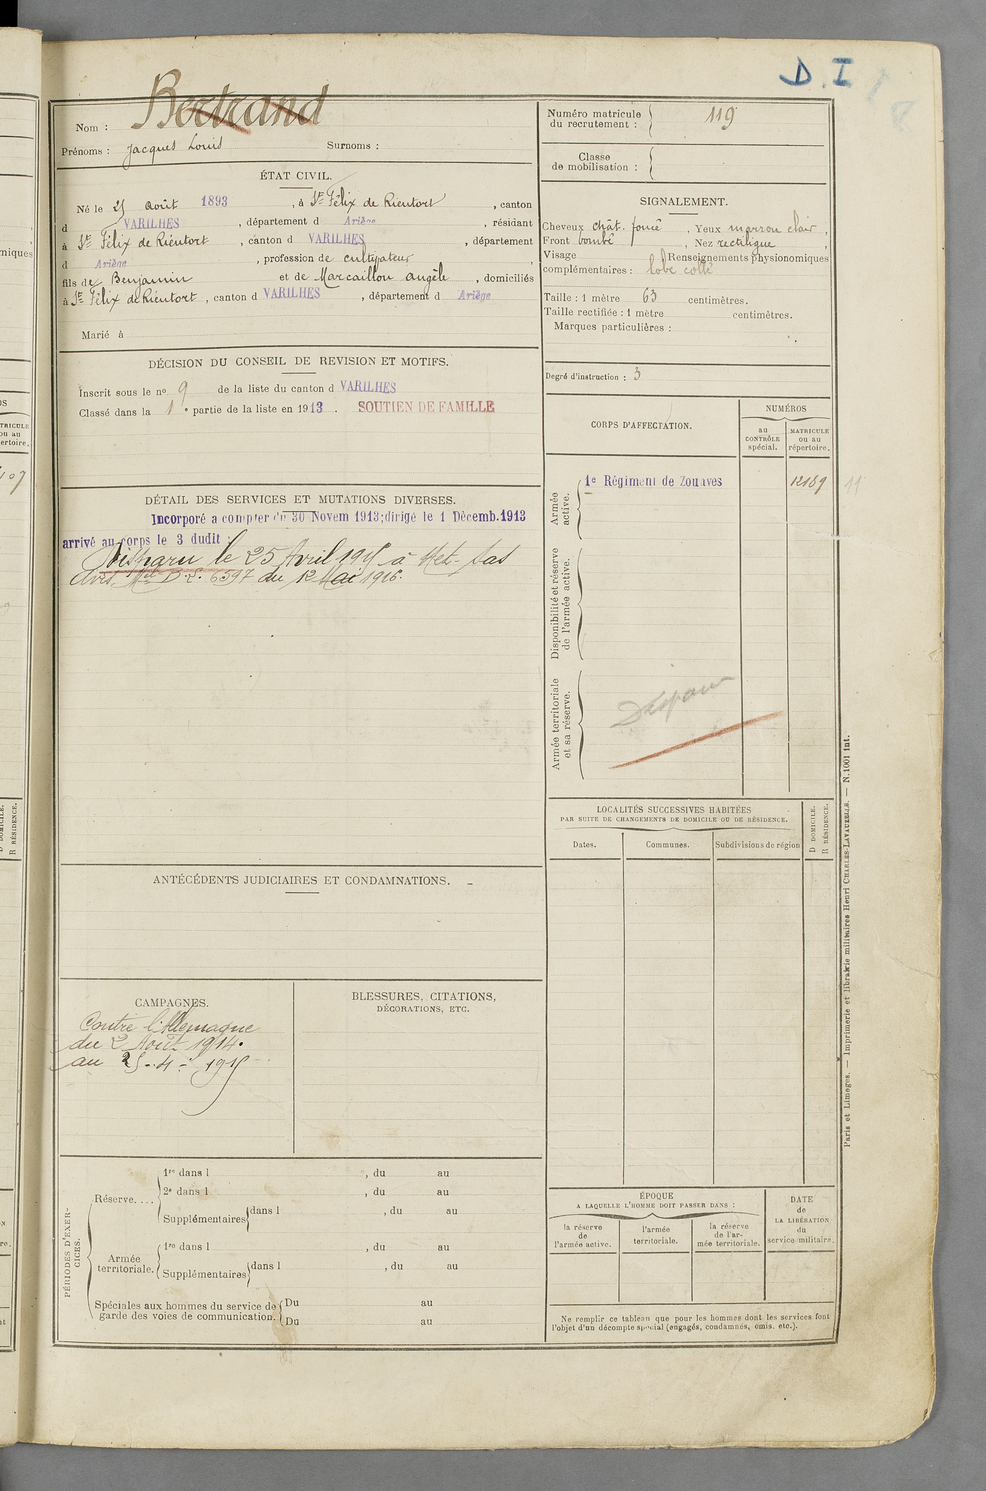 D.I
Nom : Bertrand
Prénoms : Jacques Louis Surnoms :
Numéro matricule du recrutement : 119
Classe de mobilisation :
ÉTAT CIVIL.
Né le 25 août 1893, à St Félix de Rieutort, canton
d VARILHES, département d Ariège, résidant
à St Félix de Riéutort, canton d VARILHES, département
d Ariège, profession de cultivateur,
fils de Benjamin et de Marcaillou Angèle, domiciliés
à St Félix de Riéutort, canton d VARILHES, département d Ariège
Marié à
SIGNALEMENT.
Cheveux chât. foncé, Yeux marron clair,
Front bombé, Nez rectiligne,
Visage Renseignements physionomiques
complémentaires : lobe collé
Taille : 1 mètre 63 centimètres.
Taille rectifiée : 1 mètre centimètres.
Marques particulières :
Degré d'instruction : 3
DÉCISION DU CONSEIL DE REVISION ET MOTIFS.
Inscrit sous le no 9 de la liste du canton d VARILHES
Classé dans la 1e partie de la liste en 1913. SOUTIEN DE FAMILLE
DÉTAIL DES SERVICES ET MUTATIONS DIVERSES.
Incorporé a compter du 30 Novem 1913; dirigé le 1 Décemb. 1913
arrivé au corps le 3 dudit
Disparu le 25 Avril 1915 à Het-Sas
avis Mel D.L. 6597 du 12 Mai 1916.
CORPS D'AFFECTATION.
NUMÉROS
au CONTRÔLE spécial.
MATRICULE ou au répertoire.
Armée active.
1e Régiment de Zouaves 12189
Disponibilité et réserve de l'armée active.
Armée territoriale et sa réserve.
Disparu
LOCALITÉS SUCCESSIVES HABITÉES
PAR SUITE DE CHANGEMENTS DE DOMICILE OU DE RÉSIDENCE.
Dates. Communes. Subdivisions de région
D DOMICILE.
R RÉSIDENCE.
ANTÉCÉDENTS JUDICIAIRES ET CONDAMNATIONS.
CAMPAGNES.
Contre l'Allemagne
du 2 Août 1914.
au 25-4-1915
BLESSURES, CITATIONS,
DÉCORATIONS, ETC.
PÉRIODES D'EXERCICES.
Réserve....
1re dans l , du au
2e dans l , du au
Supplémentaires dans l , du au
Armée territoriale.
1re dans l , du au
Supplémentaires dans l , du au
Spéciales aux hommes du service de garde des voies de communication.
Du au
Du au
ÉPOQUE
A LAQUELLE L'HOMME DOIT PASSER DANS :
la réserve de l'armée active.
l'armée territoriale.
la réserve de l'armée territoriale.
DATE de LA LIBÉRATION du service militaire.
Ne remplir ce tableau que pour les hommes dont les services font
l'objet d'un décompte spécial (engagés, condamnés, omis, etc.).
Paris et Limoges. — Imprimerie et librairie militaires Henri CHARLES-LAVAUZELLE. — N. 1001 int.